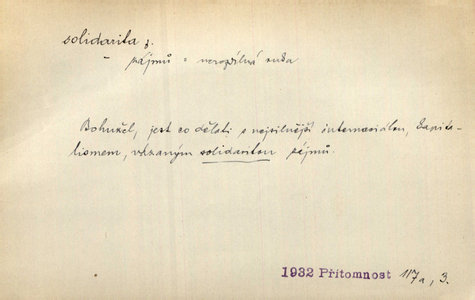 solidarita f.
– zájmů =
Bohužel, jest co dělati s nejsilnější internacionálou, kapita-
lismem, vázaným solidaritou zájmů.
1932 Přítomnost 117a, 3.